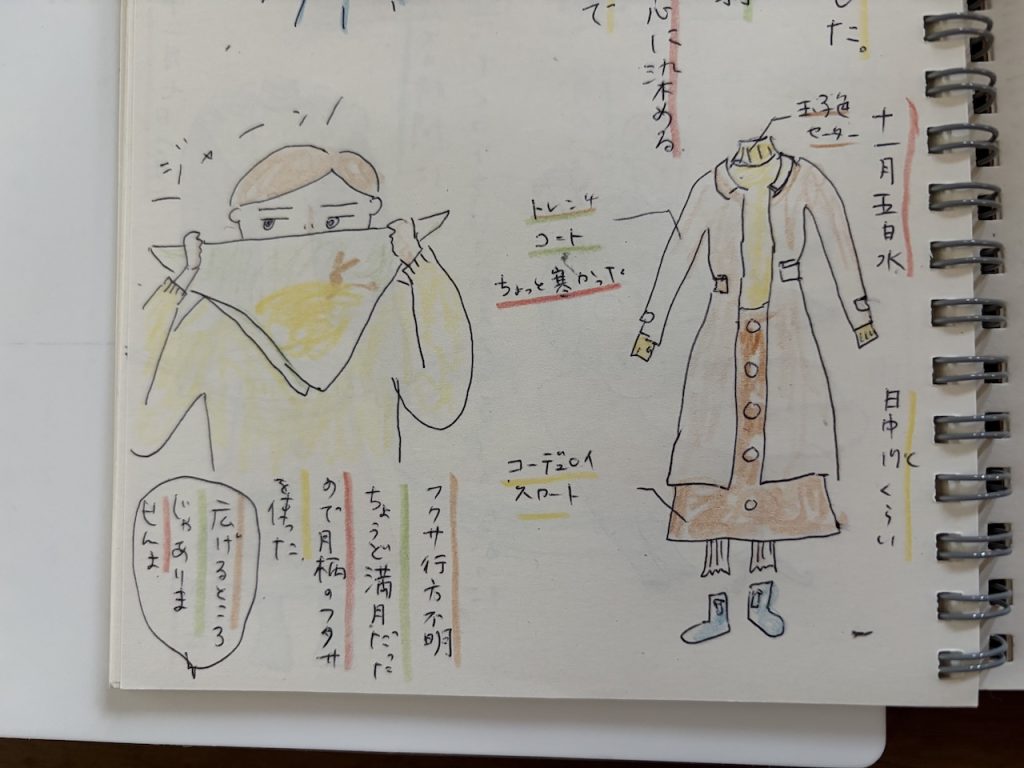 した。
心に染める
て
十一月五日水
玉子色
セーター
トレンチ
コート
ちょっと寒かった
日中17℃くらい
コーデュロイ
スカート
ジーン
フクサ行方不明
ちょうど満月だった
ので月柄のフクサ
を使った
広げるところ
じゃありま
せんよ